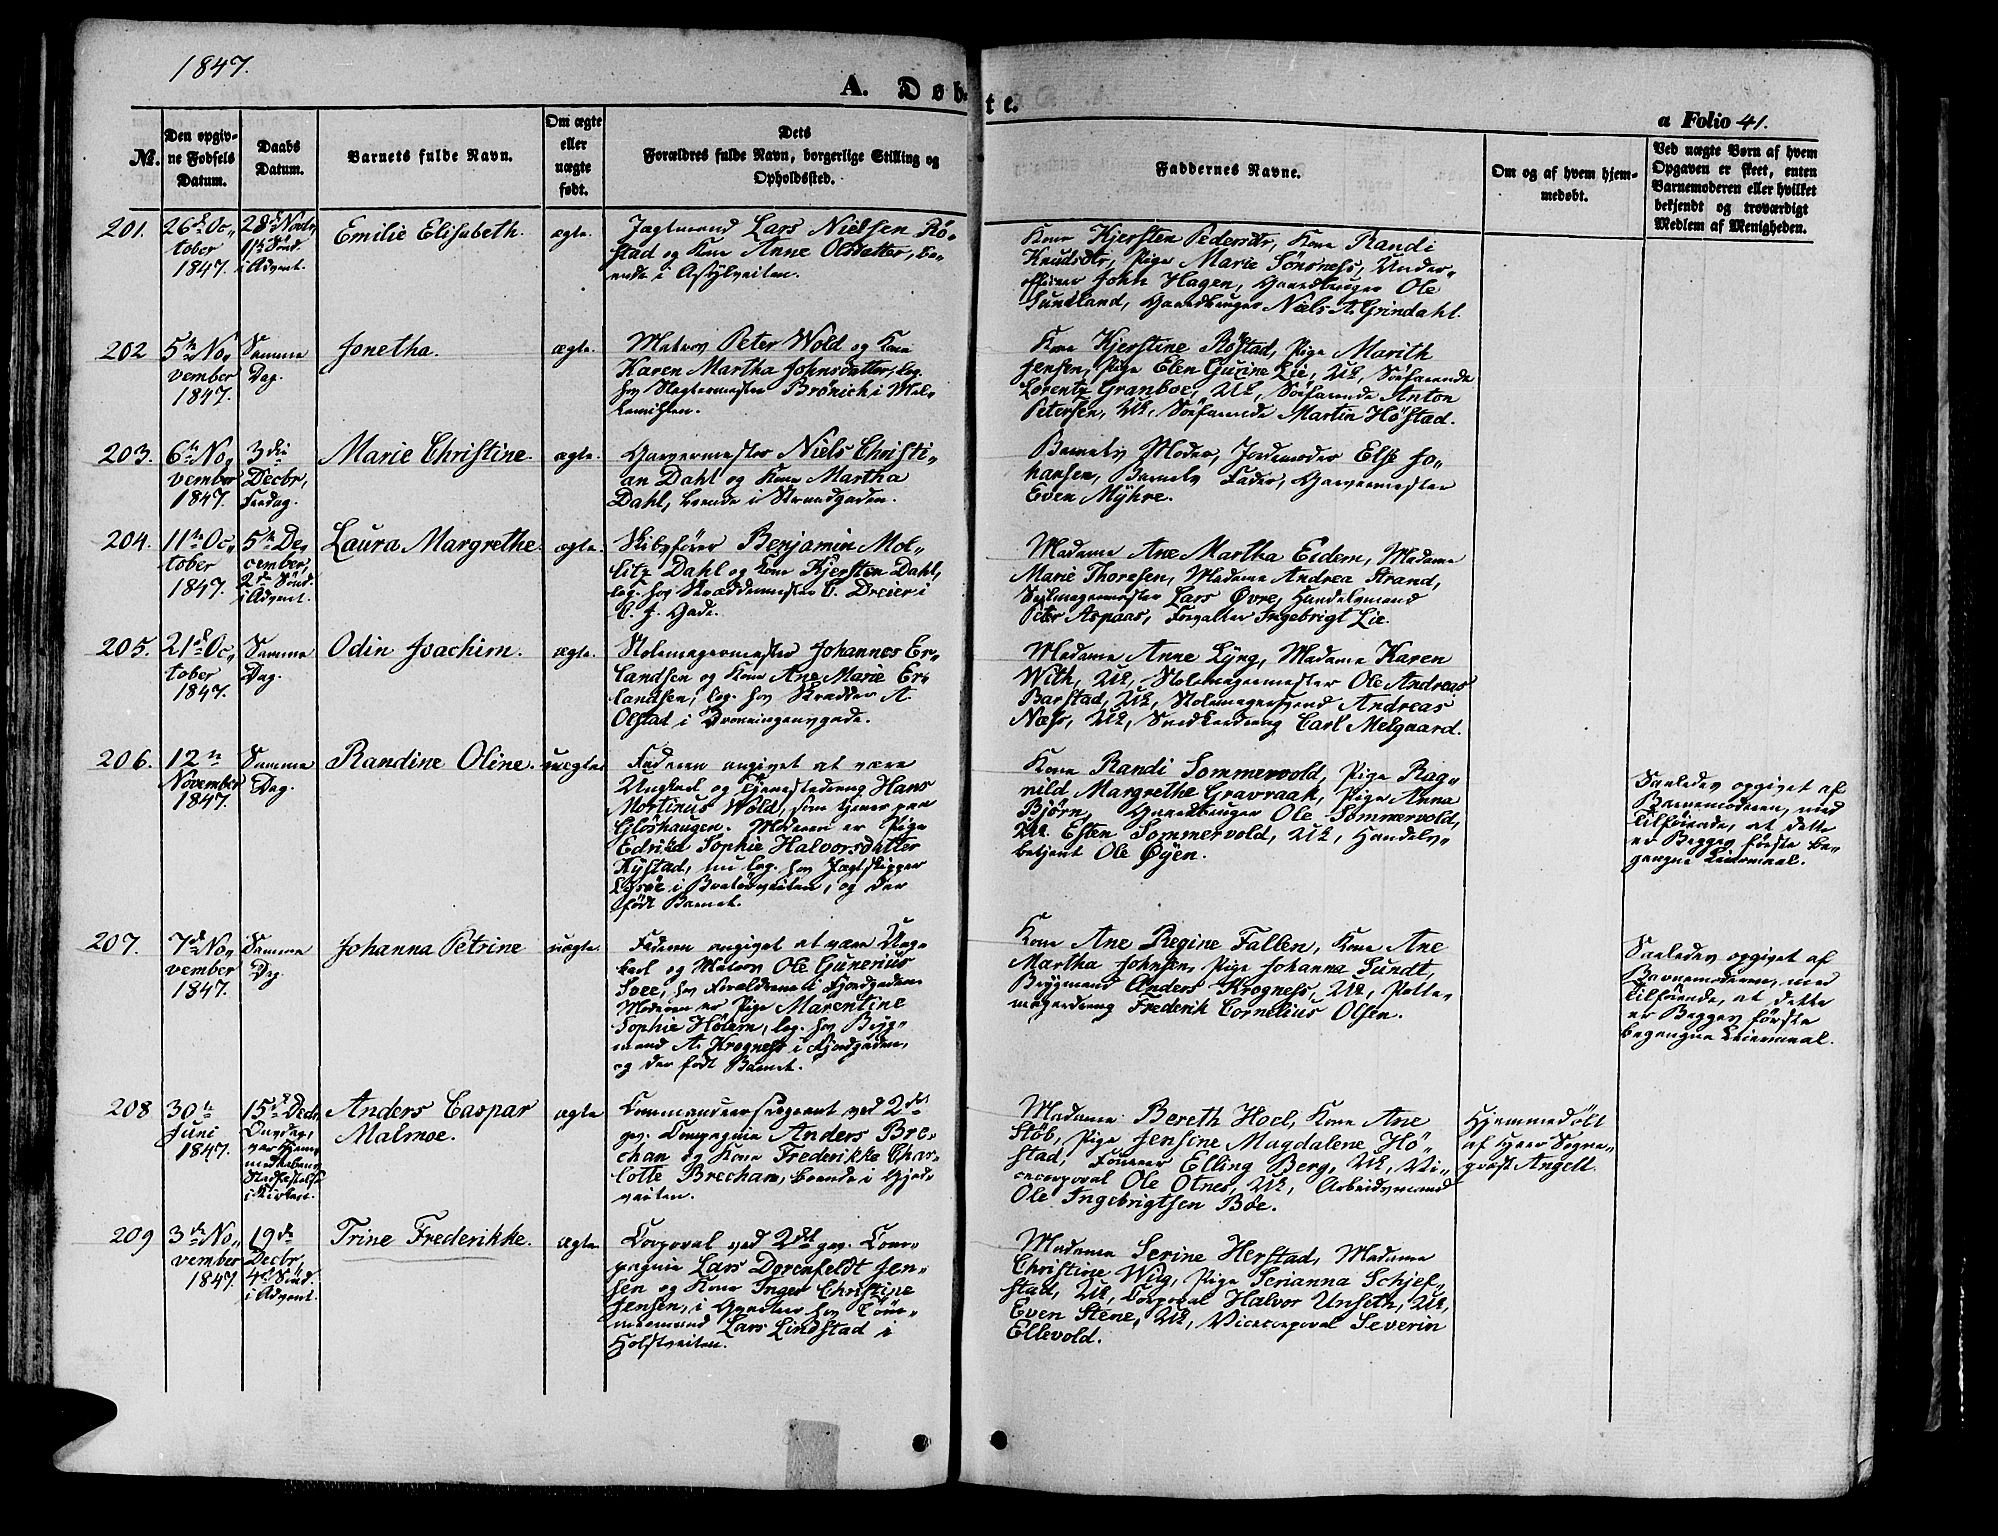 1847.
A. Døbte.
a Folio 41.
No.
Den opgiv-
ne Fødsels
Datum.
Daabs
Datum.
Barnets fulde Navn.
Om ægte
eller
uægte
født.
Dets
Forældres fulde Navn, borgerlige Stilling og
Opholdssted.
Faddernes Navne.
Om og af hvem hjem-
medøbt.
Ved uægte Børn af hvem
Opgaven er skeet, enten
Barnemoderen eller hvilket
bekjendt og troværdigt
Medlem af Menigheden.
201.
26de Oc-
tober
1847.
28de Novb,
1ste Sønd.
i Advent.
Emilie Elisabeth.
ægte.
Jagtmand Lars Nielsen Rö-
stad og Kone Anne Olsdatter, bo-
ende i Asylveiten.
Kone Kjersten Pedersdtr, Kone Randi
Knudsdtr, Pige Marie Sönsness, Under-
officier John Hagen, Huusbruger Ole
Sundland, Huusbruger Niels A. Grindahl.
202
5te No-
vember
1847.
Samme
Dag.
Jonetha.
ægte.
Matros Peter Wold og Kone
Karen Martha Johnsdatter, log.
hos Slagtermester Brönich i
Kone Kjerstine Röstad, Pige Marith
Jensen, Pige Elen Gurine Lie, Uk, Söfarende
Lorentz Granboe, Uk, Söfarende Anton
Petersen, Uk, Söfarende Martin Höstad.
203.
6te No-
vember
1847.
3die
Decbr,
Fredag.
Marie Christine.
ægte.
Garvermester Niels Christi-
an Dahl og Kone Martha
Dahl, boende i Strandgaden.
Barnets Moder, Jordemoder Else Jo-
hansen, Barnets Fader, Garvermester
Even Mÿhre.
204.
11te Oc-
tober
1847.
5te De-
cember,
2den Sønd.
i Advent.
Laura Margrethe.
ægte.
Skibsfører Benjamin Mol-
litz Dahl og Kone Kjersten Dahl,
log. hos Skræddermester C. Dreier i
Gade.
Madame Ane Martha Eidem, Madame
Marie Thoresen, Madame Andrea Strand,
Seilmagermester Lars Øvre, Handelsmand
Peter Aspaas, Forvalter Ingebrigt Lie.
205.
21de Oc-
tober
1847.
Samme
Dag.
Odin Joachim.
ægte.
Stolemagermester Johannes Er-
landsen og Kone Ane Marie Er-
landsen, log. hos Skrædder A.
Olstad i Dronningensgade.
Madame Anne Lÿng, Madame Karen
With, Uk, Stolemagermester Ole Andreas
Barstad, Uk, Stolemagersvend Andreas
Næss, Uk, Snedkerdreng Carl Melgaard.
206.
12te
November
1847.
Samme
Dag.
Randine Oline.
uægte
Faderen angivet at være
Ungkarl og Tjenestedreng Hans
Mortinus Wold, som tjener paa
Glöshaugen. Moderen er Pige
Edrikd Sophie Halvorsdatter
Rÿstad, nu log. hos Jagtskipper
i Bratørveiten, og der
født Barnet.
Kone Randi Sommervold, Pige Rag-
nild Margrethe Gravraak, Pige Anna
Björn, Huusbruger Ole Sommervold,
Uk. Esten Sommervold, Uk, Handels-
betjent Ole Øÿen.
Saaledes opgivet af
Barnemoderen, med
Tilføiende, at dette
er Begges første be-
gangne Leiermaal.
207.
7de No-
vember
1847.
Samme
Dag.
Johanna Petrine
uægte.
Faderen angivet at være Ung-
karl og Matros Ole Gunerius
Svee, hos Forældrene i Fjordgaden.
Moderen er Pige Marentine
Sophie Hölem, log. hos Bryg-
mand A. Krogness i Fjordgaden,
og der født Barnet.
Kone Ane Regine Fallen, Kone Ane
Martha Johnsen, Pige Johanna Sundt,
Brygmand Anders Krogness, Uk, Potte-
magerdreng Frederik Cornelius Olsen.
Saaledes opgivet af
Barnemoderen, med
Tilføiende, at dette
er Begges første
begangne Leiermaal.
208
30te
Juni
1847.
15de Decb,
Onsdag,
var Hjem-
medaabens
Stadfæstelse
i Kirken.
Anders Caspar
Malmoe.
ægte
Commandeersergeant ved 2det
gev. Compagnie Anders Bre-
chan og Kone Frederikke Char-
lotte Brechan, boende i
veiten.
Madame Bereth Hoel, Kone Ane
Stöb, Pige Jensine Magdalene Hö-
stad, Fourer Elling Berg, Uk, Vi-
cecorporal Ole Otnes, Uk, Arbeidsmand
Ole Ingebrigtsen Böe.
Hjemmedöbt
af Herr Sogne-
præst Angell.
209
3die No-
vember
1847.
19de
Decbr,
4de Sönd.
i Advent.
Trine Frederikke.
ægte.
Corporal ved 2det gev. Com-
pagnie Lars Dorenfeldt Jen-
sen og Kone Inger Christine
Jensen, i Qvarteer hos Töm-
mermand Lars Lindstad i
Holstveiten.
Madame Serine Herstad, Madame
Christine Wilg, Pige Serianna Schjef-
stad, Uk, Corporal Halvor Unseth, Uk,
Even Stene, Uk, Vicecorporal Severin
Ellevold.